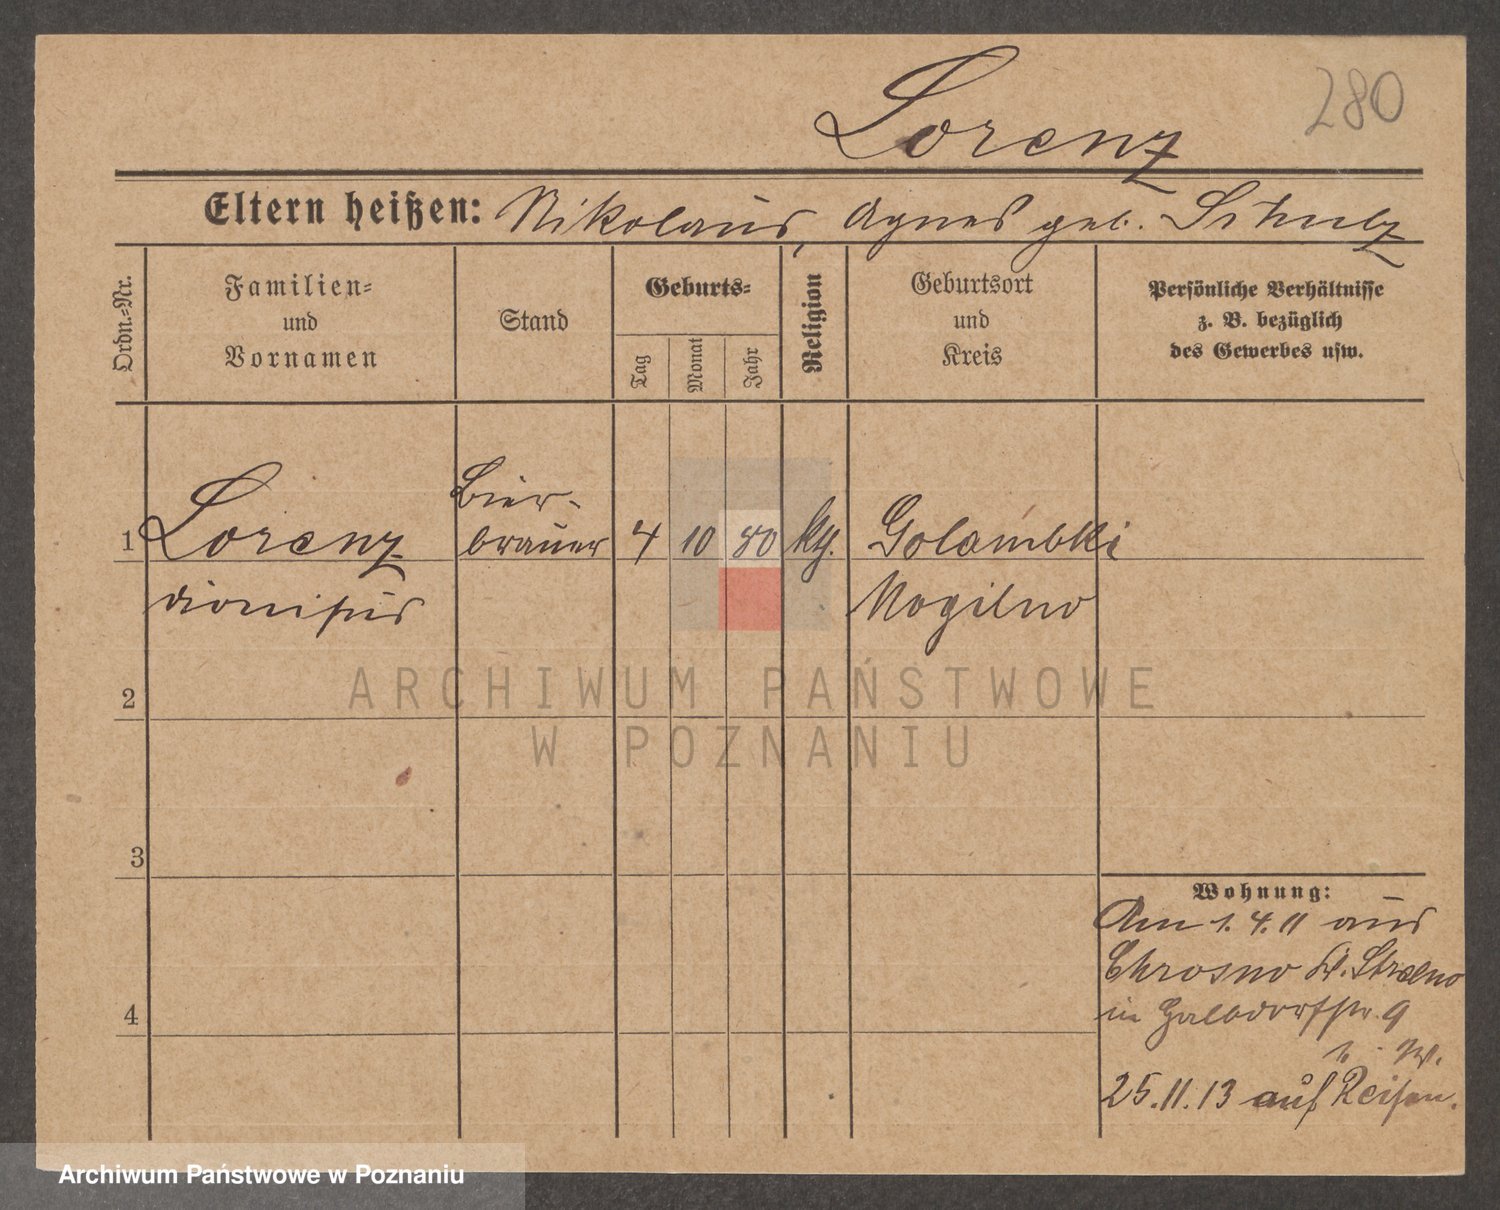 280
Lorenz
Eltern heißen: Nikolaus, Agnes geb. Schulz
Ordn.-Nr.
Familien-
und
Vornamen
Stand
Geburts-
Tag
Monat
Jahr
Religion
Geburtsort
und
Kreis
Persönliche Verhältnisse
z. B. bezüglich
des Gewerbes usw.
1
Lorenz
Dionisius
Bier-
brauer
4
10
80
Golambki
Mogilno
2
3
4
Wohnung:
Am 1.4.11 aus
Chrosno Kr. Strelno
in
9
W.
25.11.13 auf Reisen.
ARCHIWUM PAŃSTWOWE
W POZNANIU
Archiwum Państwowe w Poznaniu